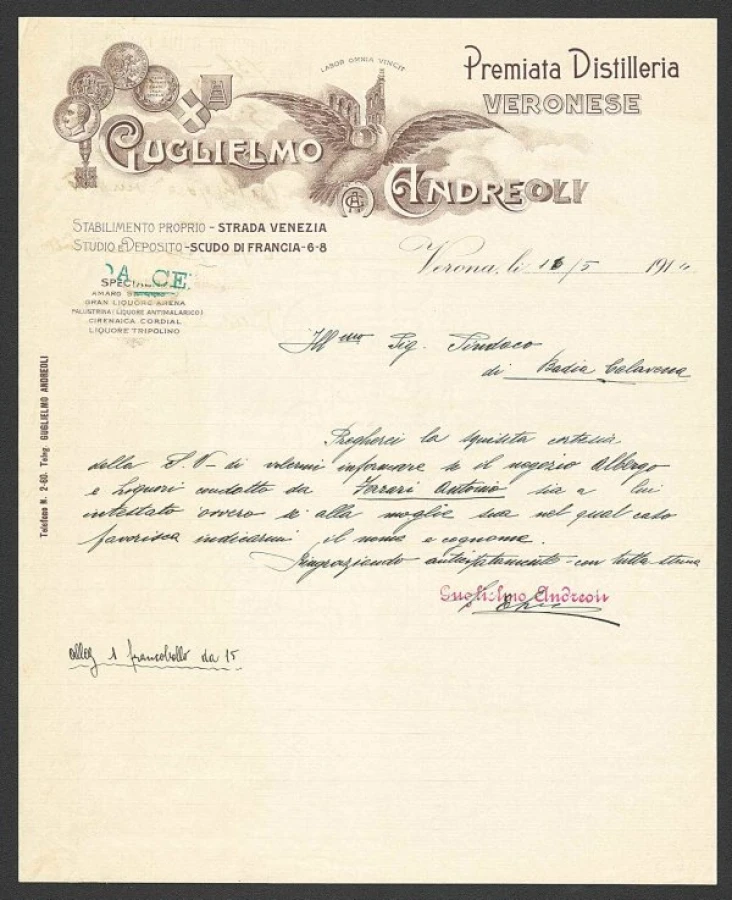 LABOR OMNIA VINCIT
Premiata Distilleria
VERONESE
GUGLIELMO
ANDREOLI
STABILIMENTO PROPRIO - STRADA VENEZIA
STUDIO e DEPOSITO - SCUDO DI FRANCIA - 6-8
SPECIALITÀ
AMARO
GRAN LIQUORE ARENA
PALUSTRINA (LIQUORE ANTIMALARICO)
CIRENAICA CORDIAL
LIQUORE TRIPOLINO
Verona, li 18/5 191
Telefono N. 2-60. Teleg. GUGLIELMO ANDREOLI
Ill mo Sig. Sindaco
di Badia Calavena
Pregherei la squisita cortesia
della S. V- di volermi informare se il negozio Albergo
e Liquori condotto da Ferrari Antonio sia a lui
intestato ovvero se alla moglie sua nel qual caso
favorisca indicarmi il nome e cognome.
Ringraziando anticipatamente con tutta stima
Guglielmo Andreoli
alleg 1 francobollo da 15